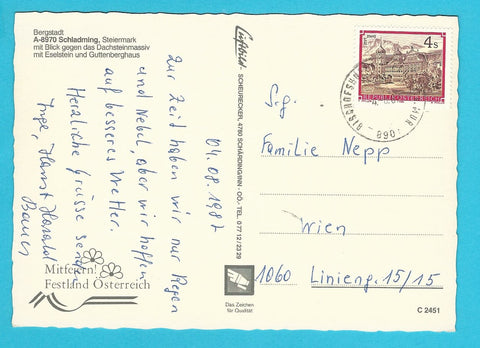 Bergstadt
A-8970 Schladming, Steiermark
mit Blick gegen das Dachsteinmassiv
mit Eselstein und Guttenberghaus
04.08.1987
Zur Zeit haben wir nur Regen
und Nebel, aber wir hoffen
auf besseres Wetter.
Herzliche Grüsse senden
Inge, Horst Harald
Bauer
Mitfeiern!
Festland Österreich
Luftbild- SCHEURECKER, 4780 SCHÄRDING/INN · OÖ., TEL. 0 77 12 / 23 29
4 S
REPUBLIK ÖSTERREICH
Sg.
Familie Nepp
Wien
1060 Linieng. 15/15
Das Zeichen
für Qualität
C 2451